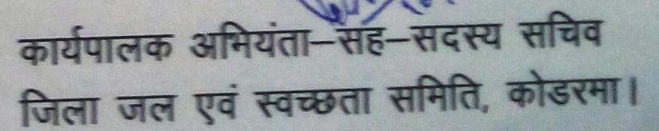 कार्यपालक अभियंता–सह–सदस्य सचिव
जिला जल एवं स्वच्छता समिति, कोडरमा।